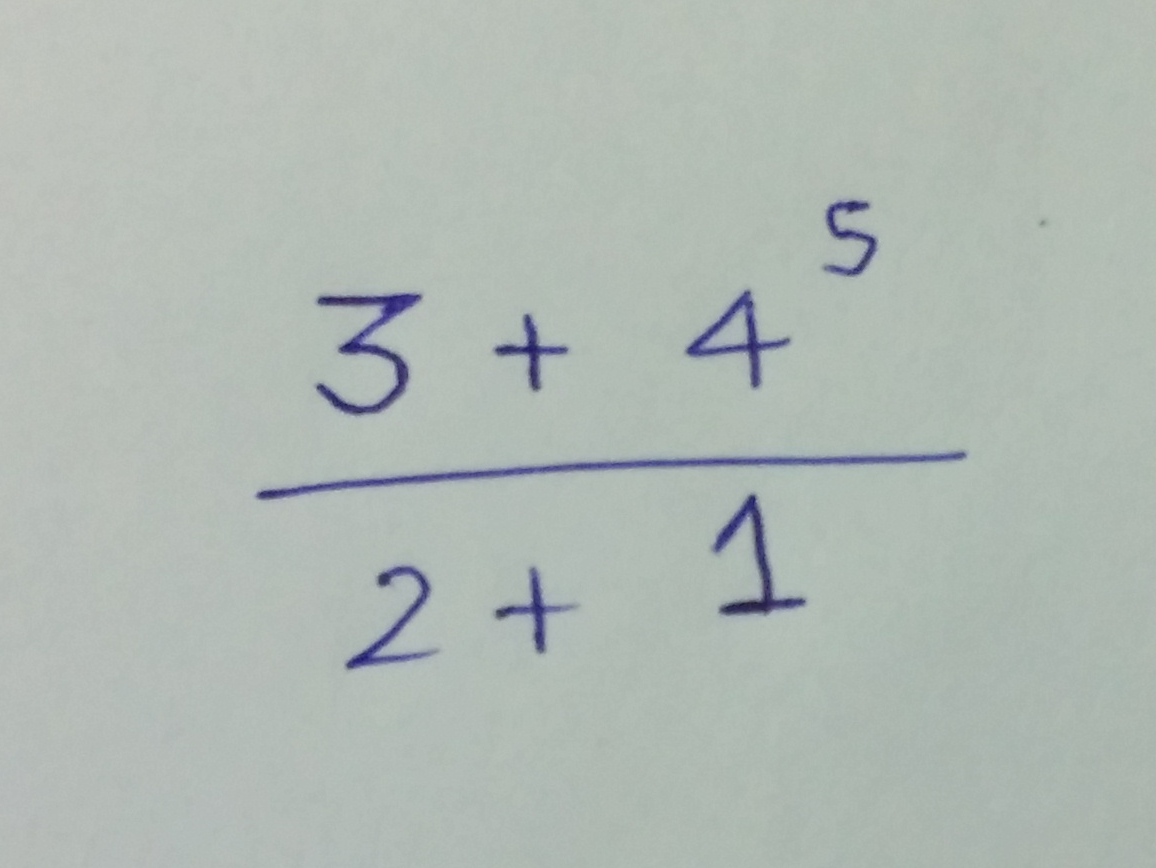 3 + 4⁵
2 + 1